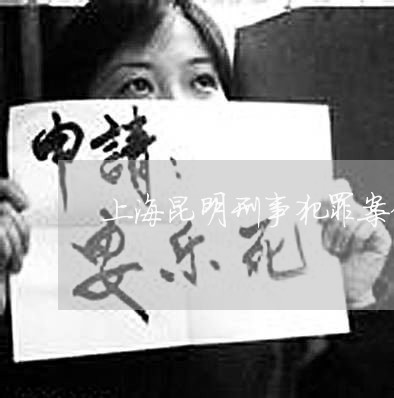 申請：
上海昆明刑事犯罪案
安乐死